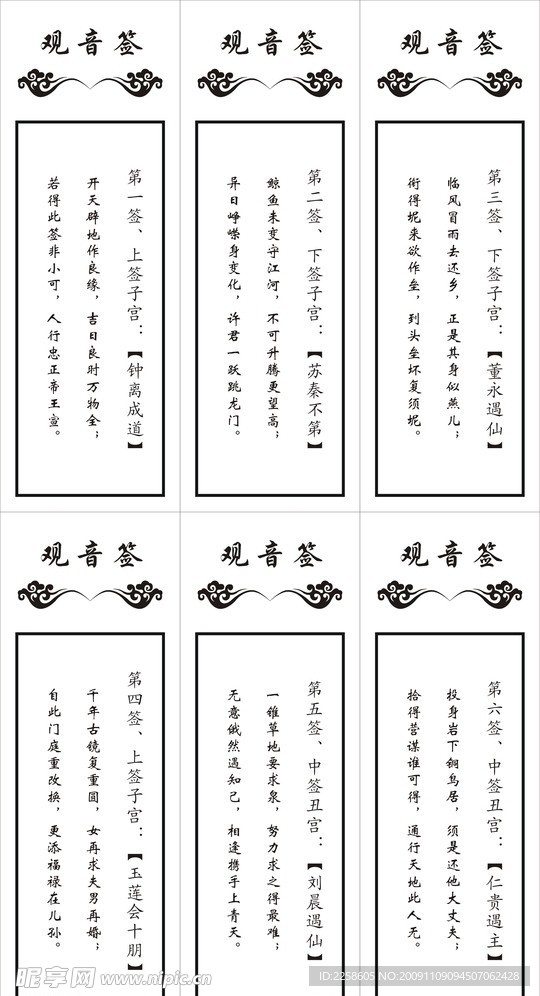 观音签
第一签、上签子宫：【钟离成道】
开天辟地作良缘，吉日良时万物全；
若得此签非小可，人行忠正帝王宣。
观音签
第二签、下签子宫：【苏秦不第】
鲸鱼未变守江河，不可升腾更望高；
异日峥嵘身变化，许君一跃跳龙门。
观音签
第三签、下签子宫：【董永遇仙】
临风冒雨去还乡，正是其身似燕儿；
衔得坭来欲作垒，到头垒坏复须坭。
观音签
第四签、上签子宫：【玉莲会十朋】
千年古镜复重圆，女再求夫男再婚；
自此门庭重改换，更添福禄在儿孙。
观音签
第五签、中签丑宫：【刘晨遇仙】
一锥草地要求泉，努力求之得最难；
无意俄然遇知己，相逢携手上青天。
观音签
第六签、中签丑宫：【仁贵遇主】
投身岩下铜鸟居，须是还他大丈夫；
拾得营谋谁可得，通行天地此人无。
昵享网 www.nipic.cn
ID:2258605 NO:20091109094507062428